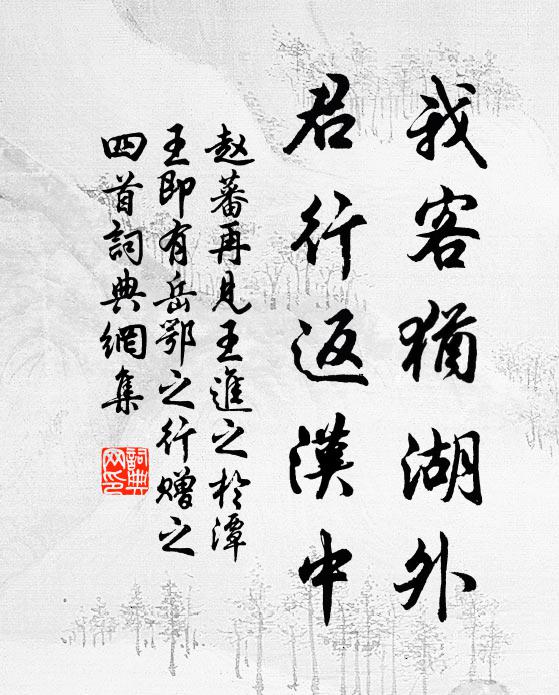 我客猶湖外
君行返漢中
赵蕃再見王進之於潭
王即有岳鄂之行赠之
四首詞典網集
詞典网印